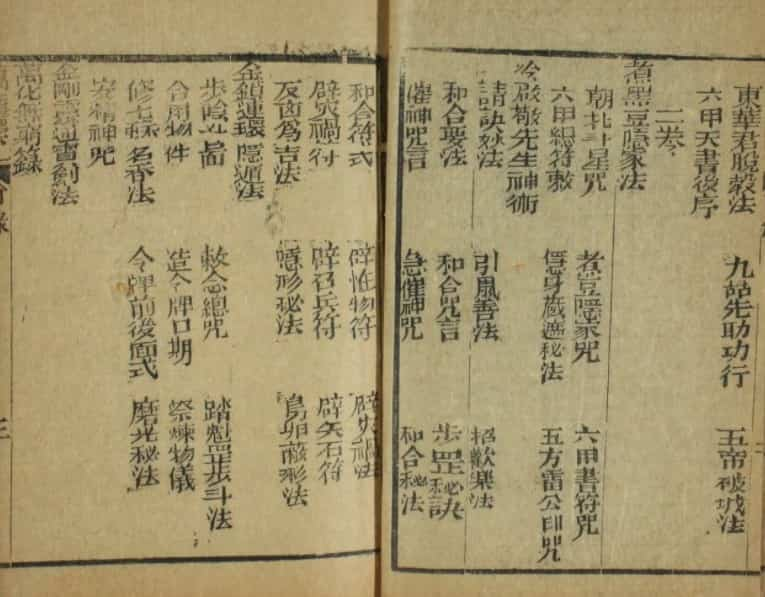 東華君脫殼法 九姑先助功行 五帝破城法
六甲天書後序
二卷
煮黑豆隱家法
朝北斗星咒 煮豆隱家咒 六甲書符咒
六甲總符敕 隱身藏遁秘法 五方雷公印咒
敬先生神術
請訣妙法 引風善法 招歡樂法
和合聚法 和合咒言 步罡秘訣
催神咒言 急催神咒 和合秘法
和合符式 辟怪物符
辟災禍符 辟刀兵符 辟矢石符
反凶為吉法 隱形秘法 鳥卵蔽形法
金鎖連環隱遁法
步陰 敕念總咒 踏魁罡步斗法
合用物件 造令牌日期 祭煉物儀
名香法 令牌前後面式 磨光秘法
安精神咒
金剛靈通雷劍法
萬化無窮錄